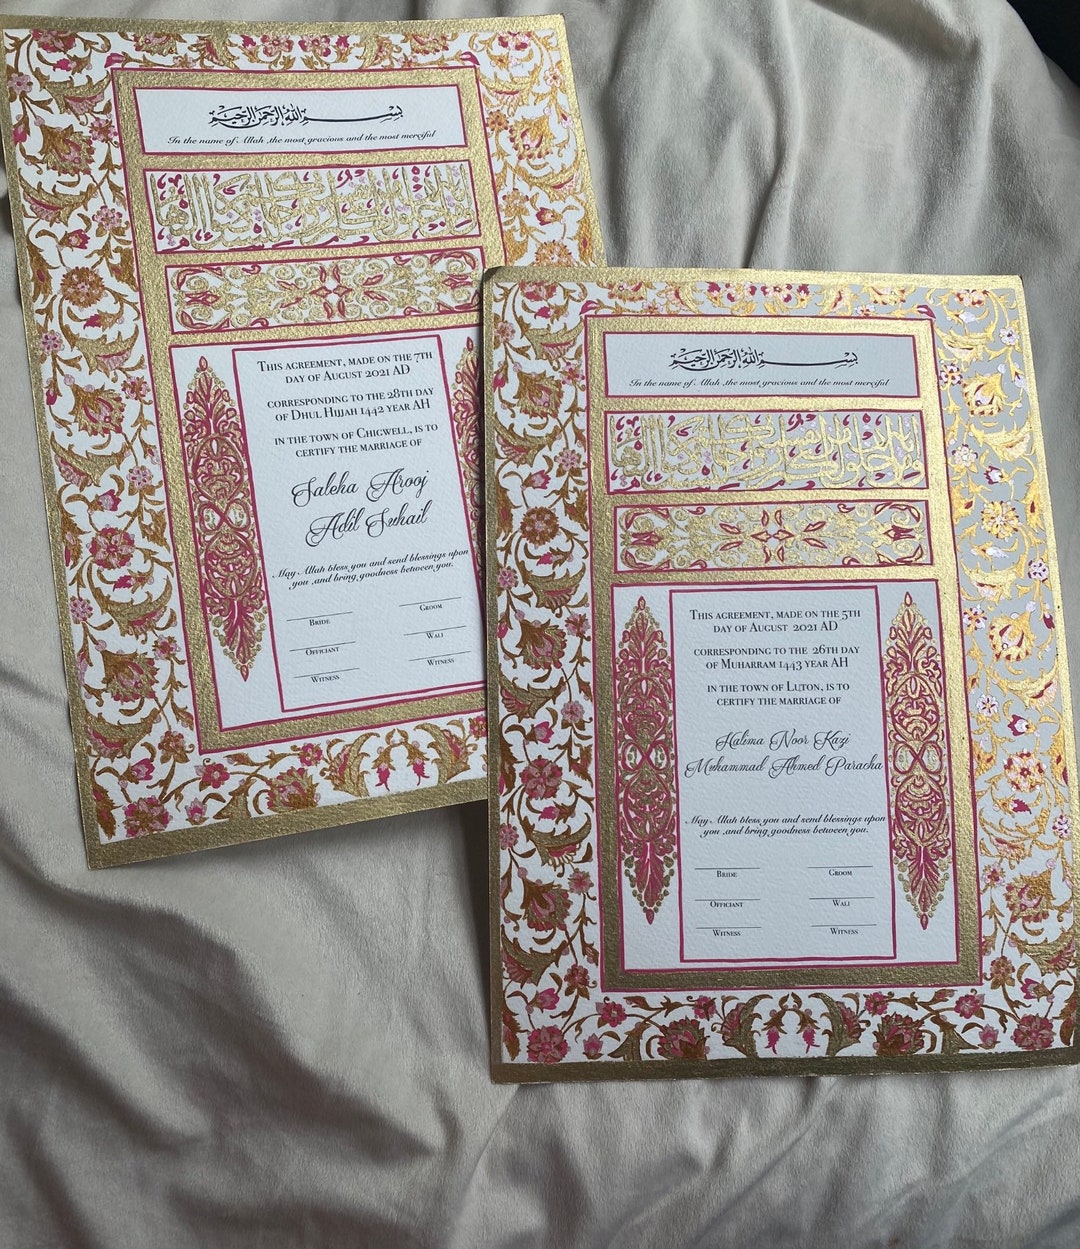 بسم الله الرحمن الرحيم
In the name of Allah ,the most gracious and the most merciful
This agreement, made on the 7th
day of August 2021 AD
corresponding to the 28th day
of Dhul Hijjah 1442 year AH
in the town of Chigwell, is to
certify the marriage of
Saleha Arooj
Adil Suhail
May Allah bless you and send blessings upon
you ,and bring goodness between you.
Bride
Groom
Officiant
Wali
Witness
Witness
بسم الله الرحمن الرحيم
In the name of Allah ,the most gracious and the most merciful
This agreement, made on the 5th
day of August 2021 AD
corresponding to the 26th day
of Muharram 1443 year AH
in the town of Luton, is to
certify the marriage of
Halima Noor Kazi
Muhammad Ahmed Paracha
May Allah bless you and send blessings upon
you ,and bring goodness between you.
Bride
Groom
Officiant
Wali
Witness
Witness